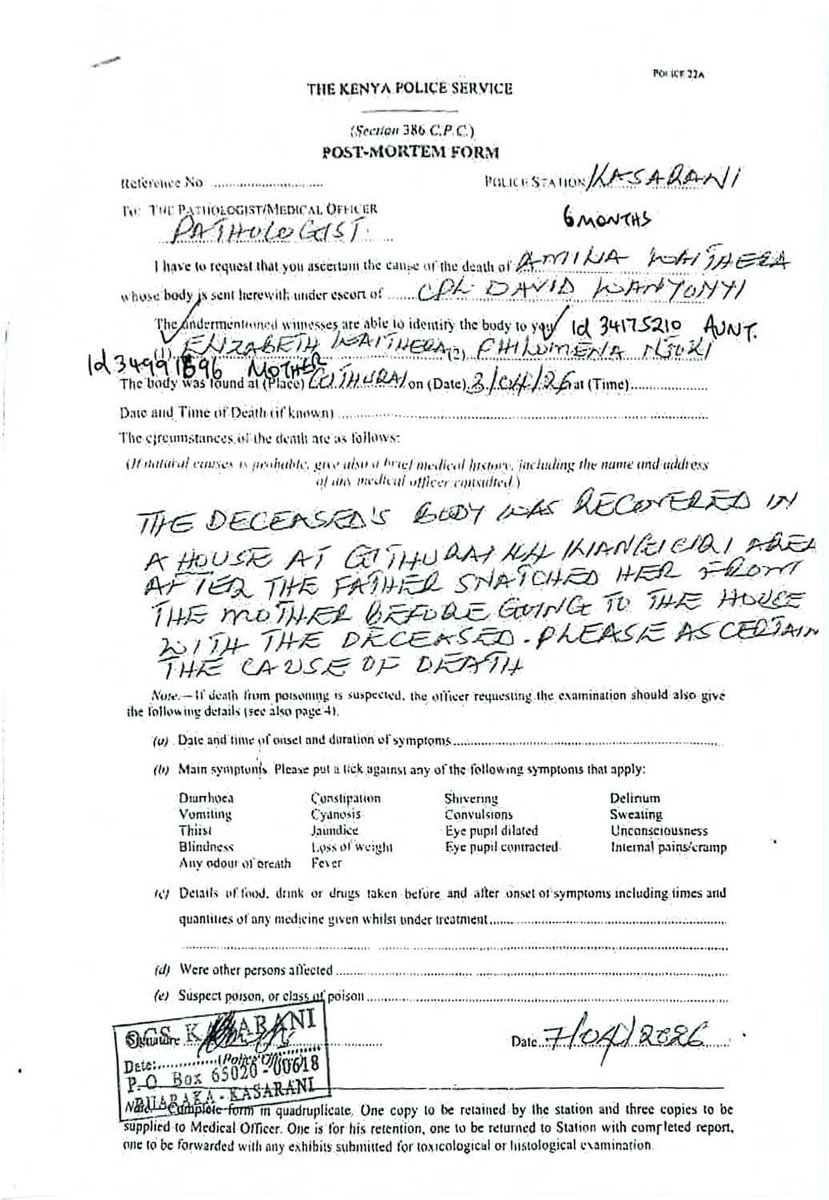 POLICE 22A
THE KENYA POLICE SERVICE
(Section 386 C.P.C.)
POST-MORTEM FORM
Reference No ............................ POLICE STATION KASARANI
To: THE PATHOLOGIST/MEDICAL OFFICER
6 MONTHS
PATHOLOGIST.
I have to request that you ascertain the cause of the death of AMINA WAITHERA
whose body is sent herewith under escort of ...... CPL DAVID WANYONYI
The undermentioned witnesses are able to identify the body to you Id 34175210 AUNT.
(1) ELIZABETH WAITHERA (2) PHILOMENA NJUKI
Id MOTHER
The body was found at (Place) GITHURAI on (Date) 3/04/26 at (Time)....................
Date and Time of Death (if known) ................................................................
The circumstances of the death are as follows:
(If natural causes is probable, give also a brief medical history, including the name and address
of any medical officer consulted.)
THE DECEASED'S BODY WAS RECOVERED IN
A HOUSE AT GITHURAI AREA
AFTER THE FATHER SNATCHED HER FROM
THE MOTHER BEFORE GOING TO THE HOUSE
WITH THE DECEASED. PLEASE ASCERTAIN
THE CAUSE OF DEATH
Note.—If death from poisoning is suspected, the officer requesting the examination should also give
the following details (see also page 4).
(a) Date and time of onset and duration of symptoms................................................
(b) Main symptoms. Please put a tick against any of the following symptoms that apply:
Diarrhoea Constipation Shivering Delirium
Vomiting Cyanosis Convulsions Sweating
Thirst Jaundice Eye pupil dilated Unconsciousness
Blindness Loss of weight Eye pupil contracted Internal pains/cramp
Any odour of breath Fever
(c) Details of food, drink or drugs taken before and after onset of symptoms including times and
quantities of any medicine given whilst under treatment................................................
................................................................................................
(d) Were other persons affected ................................................................
(e) Suspect poison, or class of poison................................................................
OCS KASARANI
Signature .................... Date 7/04/2026
Date:............(Police Officer)
P.O. Box 65020 - 00618
RUARAKA - KASARANI
Note.—Complete form in quadruplicate. One copy to be retained by the station and three copies to be
supplied to Medical Officer. One is for his retention, one to be returned to Station with completed report,
one to be forwarded with any exhibits submitted for toxicological or histological examination.